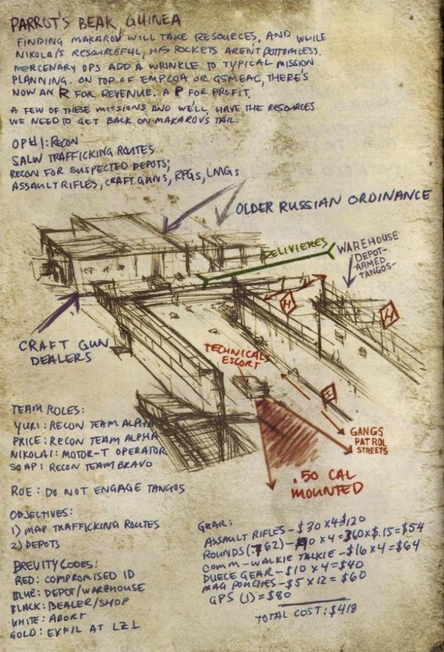 PARROT'S BEAK, GUINEA
FINDING MAKAROV WILL TAKE RESOURCES, AND WHILE
NIKOLAI'S RESOURCEFUL, HIS POCKETS AREN'T BOTTOMLESS.
MERCENARY OPS ADD A WRINKLE TO TYPICAL MISSION
PLANNING. ON TOP OF EMPCOA OR GSMEAC, THERE'S
NOW AN R FOR REVENUE. A P FOR PROFIT.
A FEW OF THESE MISSIONS AND WE'LL HAVE THE RESOURCES
WE NEED TO GET BACK ON MAKAROV'S TAIL.
OP#1: RECON
SALW TRAFFICKING ROUTES
RECON FOR SUSPECTED DEPOTS;
ASSAULT RIFLES, CRAFT GUNS, RPGS, LMGS
OLDER RUSSIAN ORDINANCE
DELIVIERES
WAREHOUSE
DEPOT-
ARMED
TANGOS-
H
H
CRAFT GUN
DEALERS
TECHNICALS
ESCORT
GANGS
PATROL
STREETS
.50 CAL
MOUNTED
TEAM ROLES:
YURI: RECON TEAM ALPHA
PRICE: RECON TEAM ALPHA
NIKOLAI: MOTOR-T OPERATOR
SOAP: RECON TEAM BRAVO
ROE: DO NOT ENGAGE TANGOS
OBJECTIVES:
1) MAP TRAFFICKING ROUTES
2) DEPOTS
BREVITY CODES:
RED: COMPROMISED ID
BLUE: DEPOT/WAREHOUSE
BLACK: DEALER/SHOP
WHITE: ABORT
GOLD: EXFIL AT LZ1
GEAR:
ASSAULT RIFLES-$30 X4 $120
ROUNDS (7.62)- 90 X 4 = 360 X $.15 = $54
COMM-WALKIE TALKIE-$16 X 4 = $64
DUECE GEAR-$10 X 4 = $40
MAG POUCHES-$5 X 12 = $60
GPS (1) = $80
TOTAL COST: $418